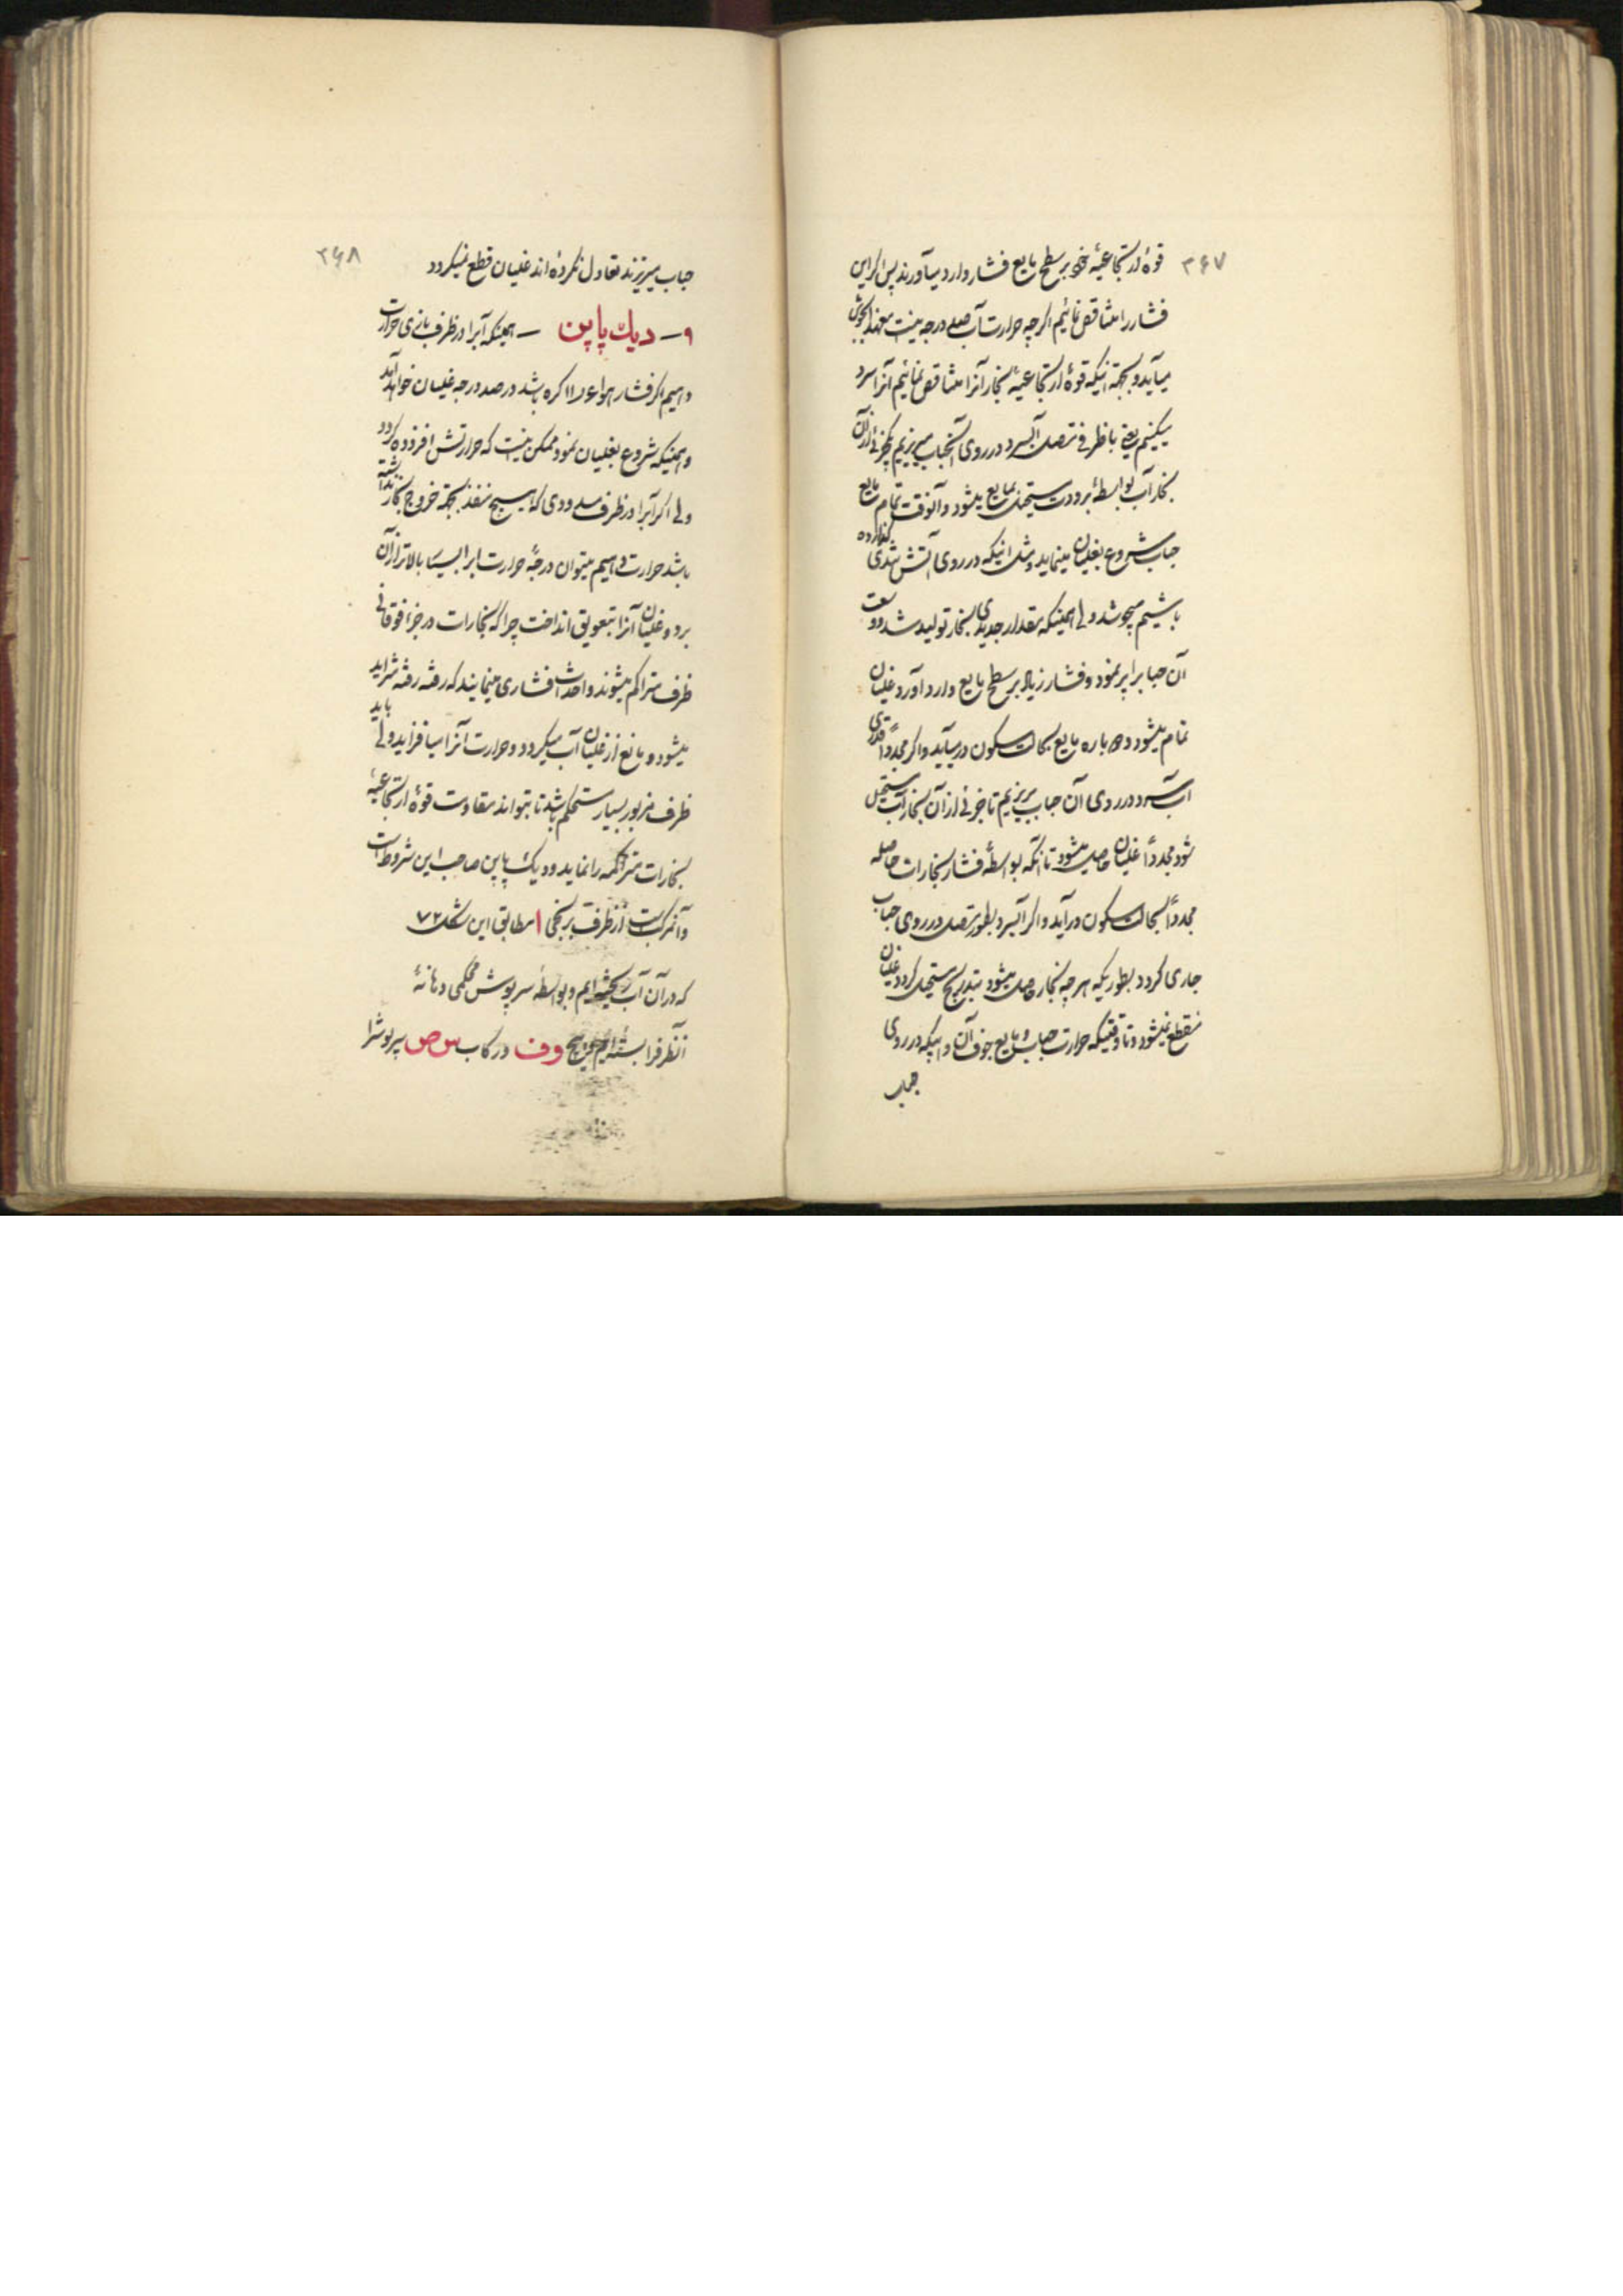 ۳۶۷
قوهٔ ارتجاعیهٔ خود بر سطح مایع فشار وارد میآورند پس اگر این
فشار را متناقص نمائیم اگر چه حرارت آب صد درجه نیست معهذا بجوش
میآید و بجهة اینکه قوهٔ ارتجاعیهٔ بخار آنرا متناقص نمائیم آنرا سرد
میکنیم یعنی با ظرفی متصل آب سرد در روی آنحباب میریزیم جزئی از آن
بخار آب بواسطهٔ برودت مستحیل بمایع میشود و آنوقت تمام مایع
حباب شروع بغلیان مینماید و مثل اینکه در روی آتش تندی گذارده
باشیم میجوشد ولی همینکه مقدار جدیدی بخار تولید شد و وسعت
آن حبابرا پر نمود و فشار زیاد بر سطح مایع وارد آورد غلیان
تمام میشود و دوباره مایع بحالت سکون در میآید و اگر مجدداً قدری
آب سرد در روی آن حباب بریزیم تا جزئی از آن بخار آب مستحیل
شود مجدداً غلیان حاصل میشود تا آنکه بواسطهٔ فشار بخارات حاصله
مجدداً بحالت سکون در آید و اگر آب سرد بطور متصل در روی حباب
جاری گردد بطوریکه هر چه بخار حاصل میشود بتدریج مستحیل گردد غلیان
منقطع نمیشود و تا وقتیکه حرارت حباب و مایع جوف آن و آبیکه در روی
حباب
۳۶۸
حباب میریزند تعادل نکرده‌اند غلیان قطع نمیگردد
۹ـ دیك پاپن ـ همینکه آبرا در ظرف بازی حرارت
دهیم اگر فشار هوا ع‌دا اکره باشد در صد درجه غلیان خواهد آمد
و همینکه شروع بغلیان نمود ممکن نیست که حرارتش افزوده گردد
ولی اگر آبرا در ظرف مسدودی که هیچ منفذ بجهة خروج بخار نداشته
باشد حرارت دهیم میتوان درجهٔ حرارت را بالاتر از آن
برد و غلیان آنرا بتعویق انداخت چرا که بخارات در جزء فوقانی
ظرف متراکم میشوند و احداث فشاری مینمایند که رفته رفته متزاید
میشود و مانع از غلیان آب میگردد و حرارت آنرا میافزاید ولی باید
ظرف مزبور بسیار مستحکم باشد تا بتواند مقاومت قوهٔ ارتجاعیهٔ
بخارات متراکمه را نماید و دیک پاپن صاحب این شروط است
و آنمرکبست از ظرف برنجی ا مطابق این شکل ۷۲
که در آن آب ریخته‌ایم و بواسطهٔ سرپوش محکمی دهانهٔ
آنظرفرا بسته‌ایم پیچ و ف در رکاب س ص سرپوشرا